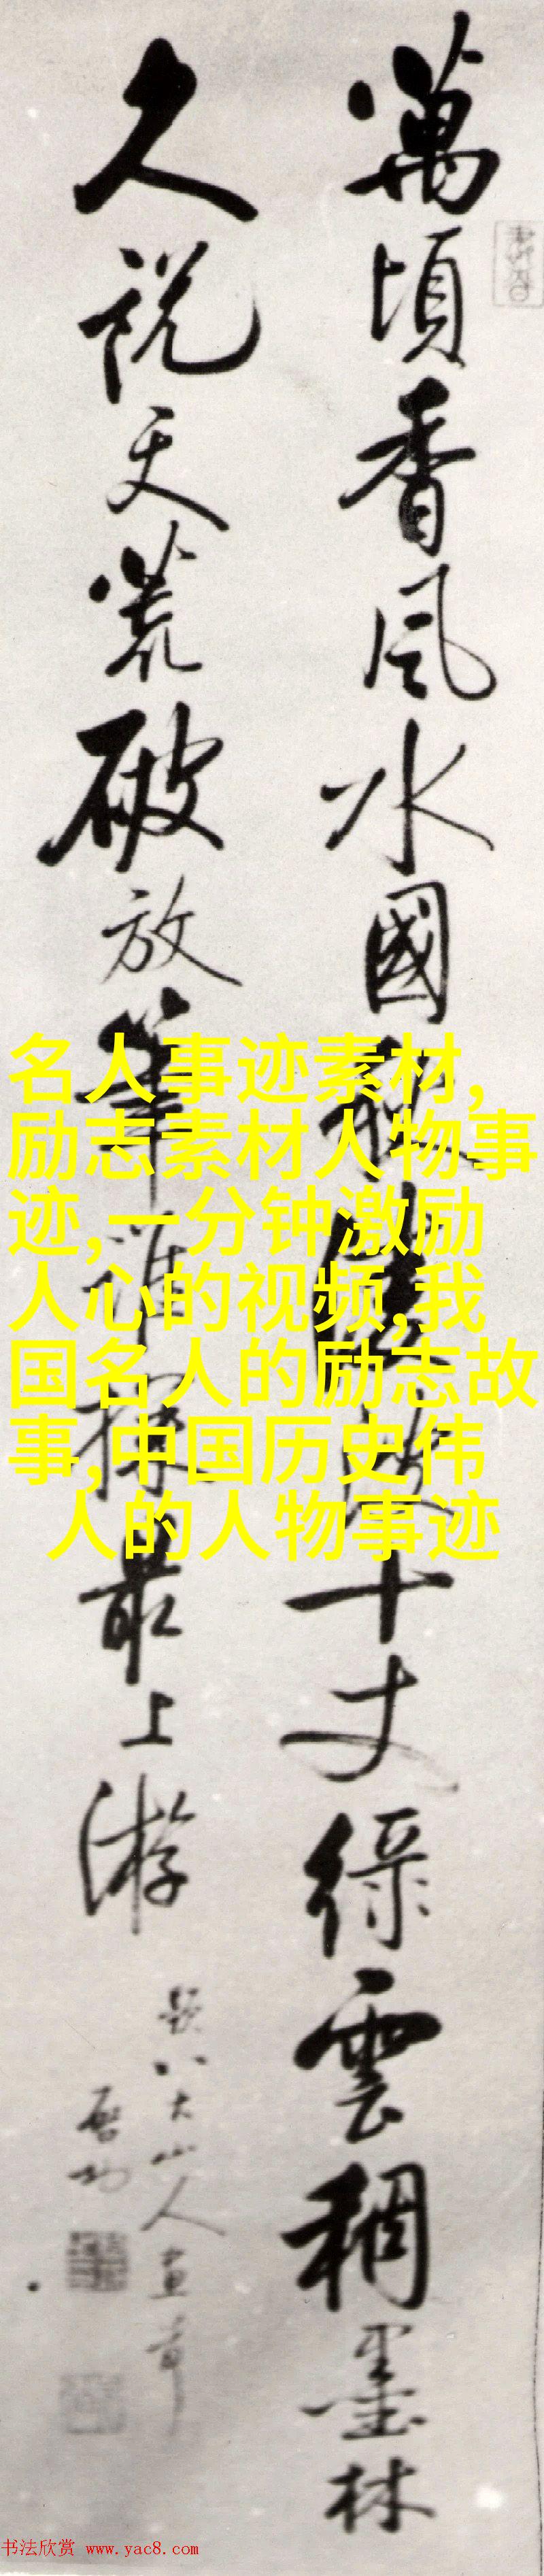 萬頃香風水國秋十丈綠雲稠墨林
久說天荒破放筆誰探最上游
題八大山人畫
啓功
名人事迹素材,
励志素材人物事
迹,一分钟激励
人心的视频,我
国名人的励志故
事,中国历史伟
人的人物事迹
书法欣赏 www.yac8.com